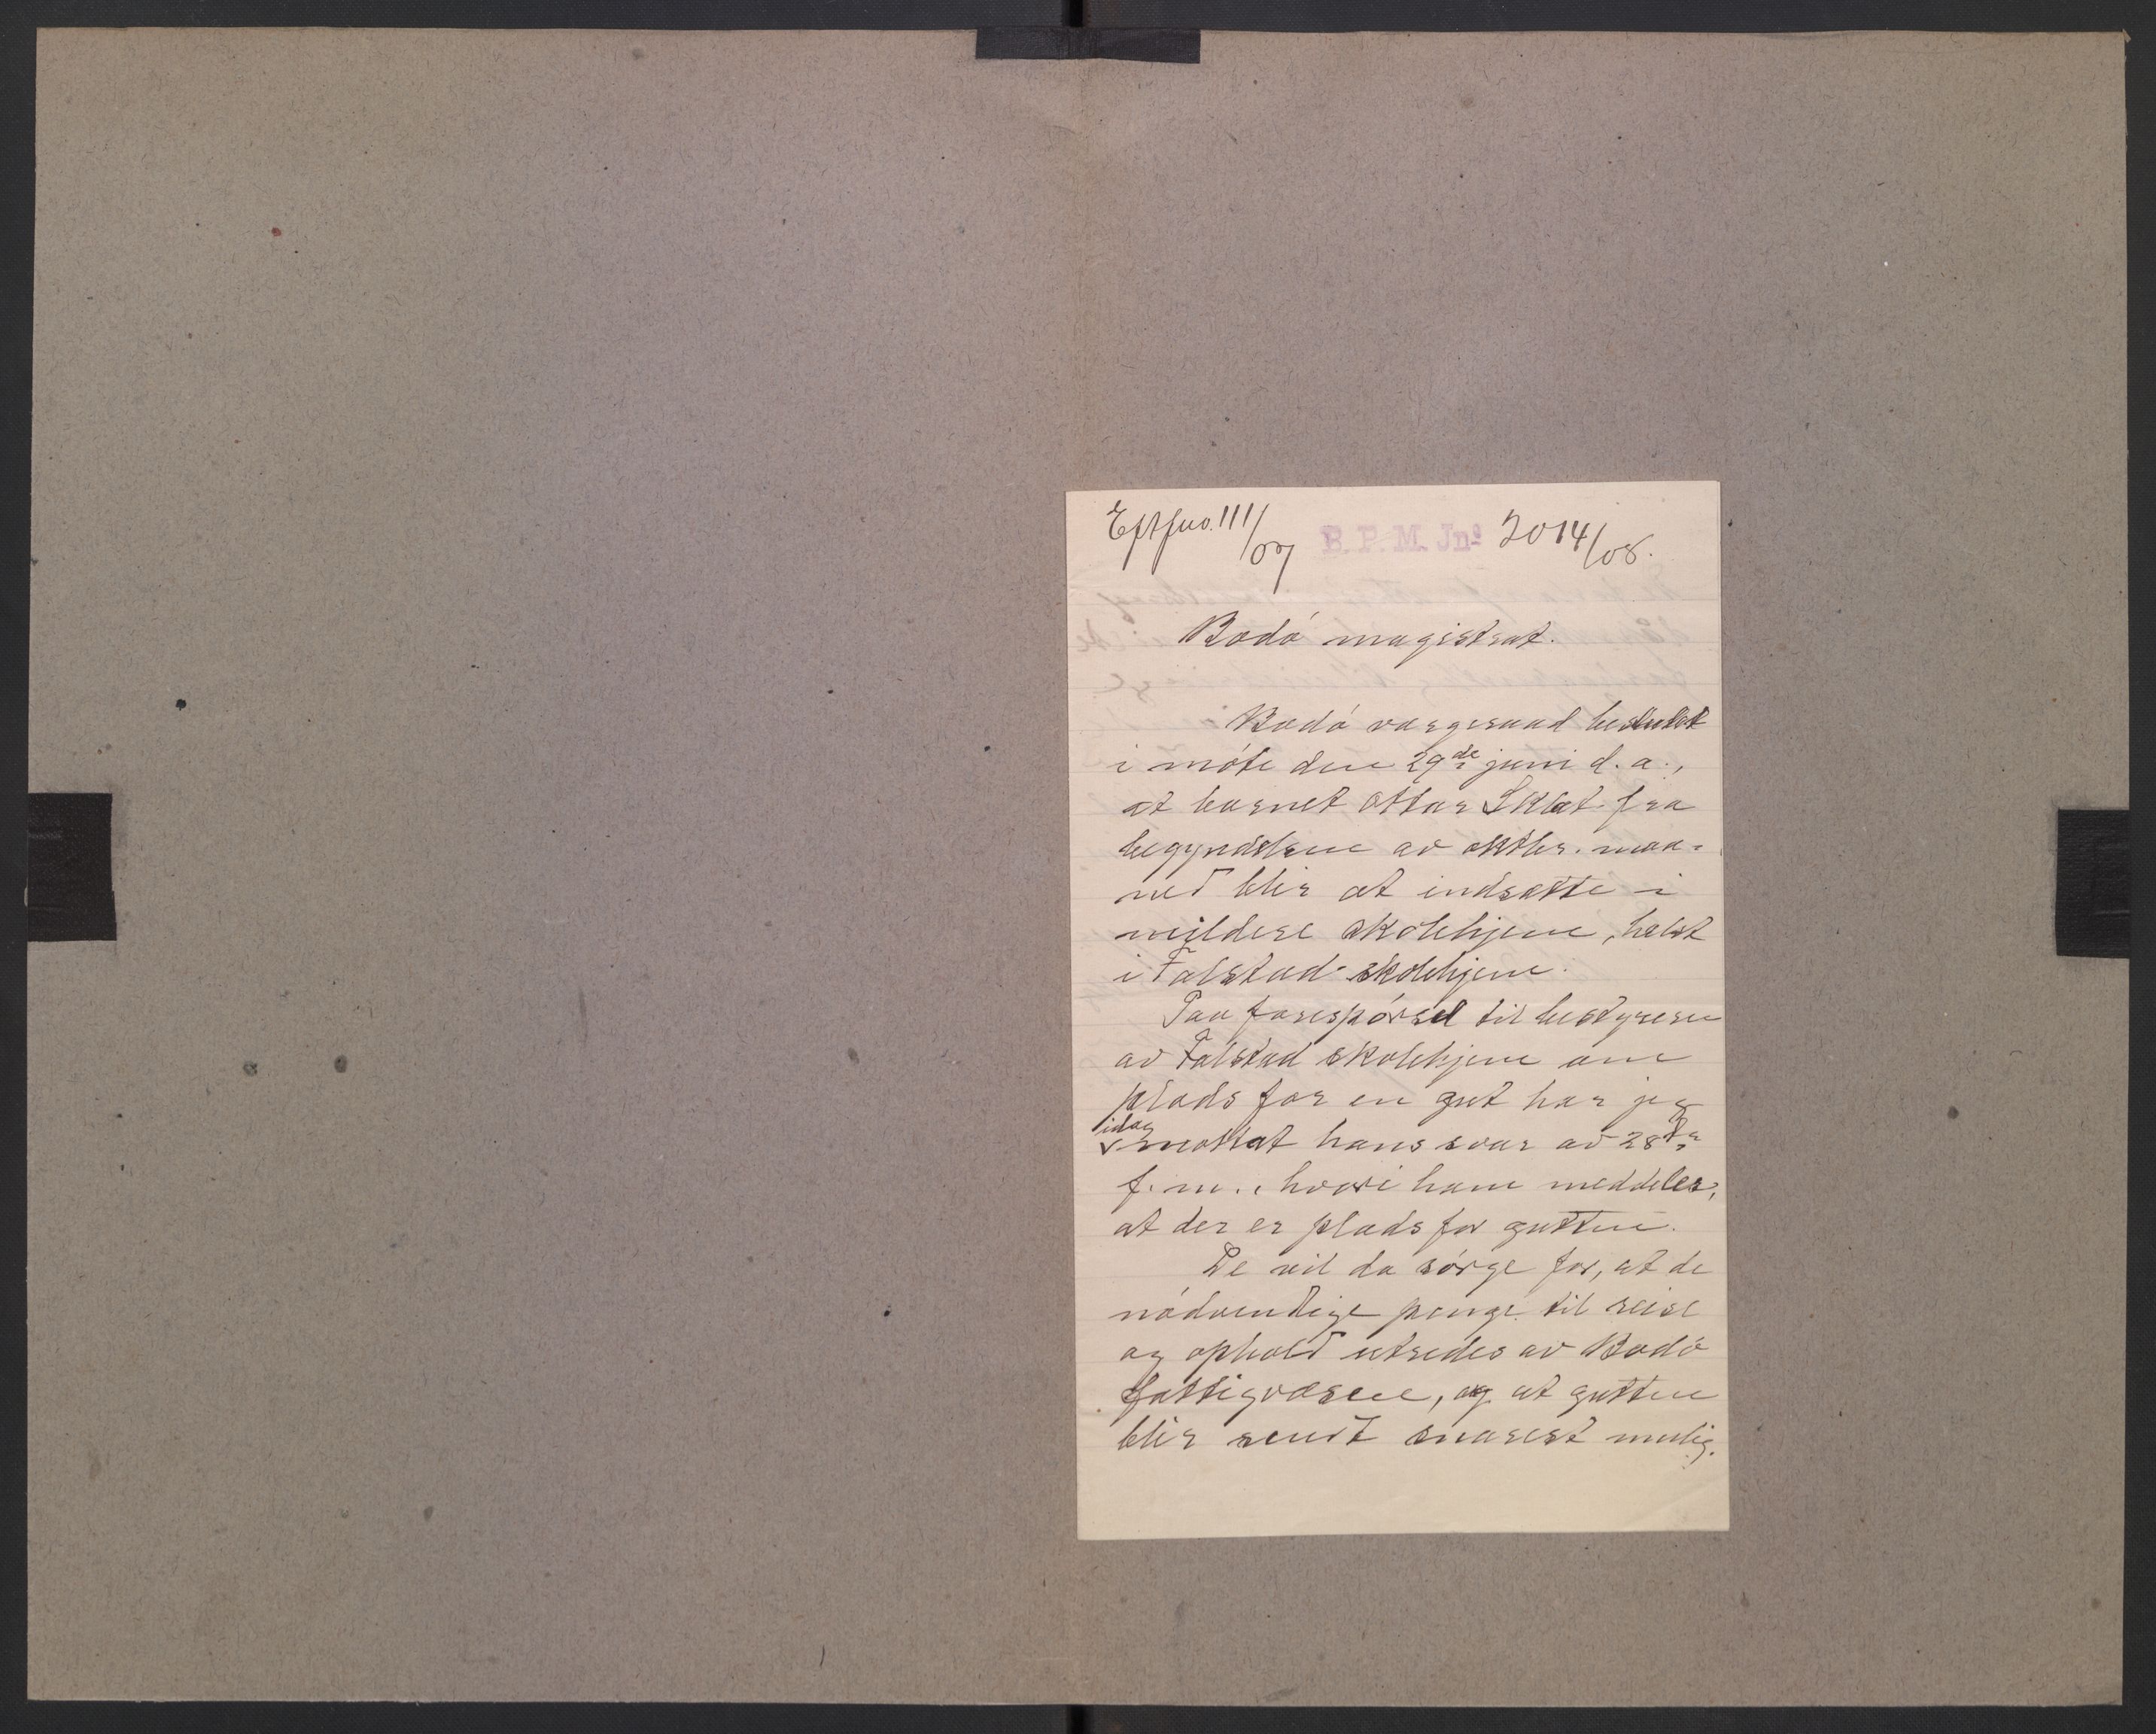 Eftfno. 111/07 B.P.M. Jnº 2014/08.
Bodó magistrat.
Bodó vergeraad besluttet
i móte den 29de juni d. a.,
at barnet Ottar Sklat fra
begyndelsen av oktbr. maa-
ned blir at indsætte i
mildere skolehjem, helst
i Falstad skolehjem.
Paa forespórsel til bestyreren
av Falstad skolehjem om
plads for en gut har jeg
idag
mottat hans svar av 28de
f. m., hvori ham meddeles,
at der er plads for gutten.
De vil da sórge for, at de
nódvendige penge til reise
og ophold utredes av Bodó
fattigvæsen, og at gutten
blir sendt snarest mulig.